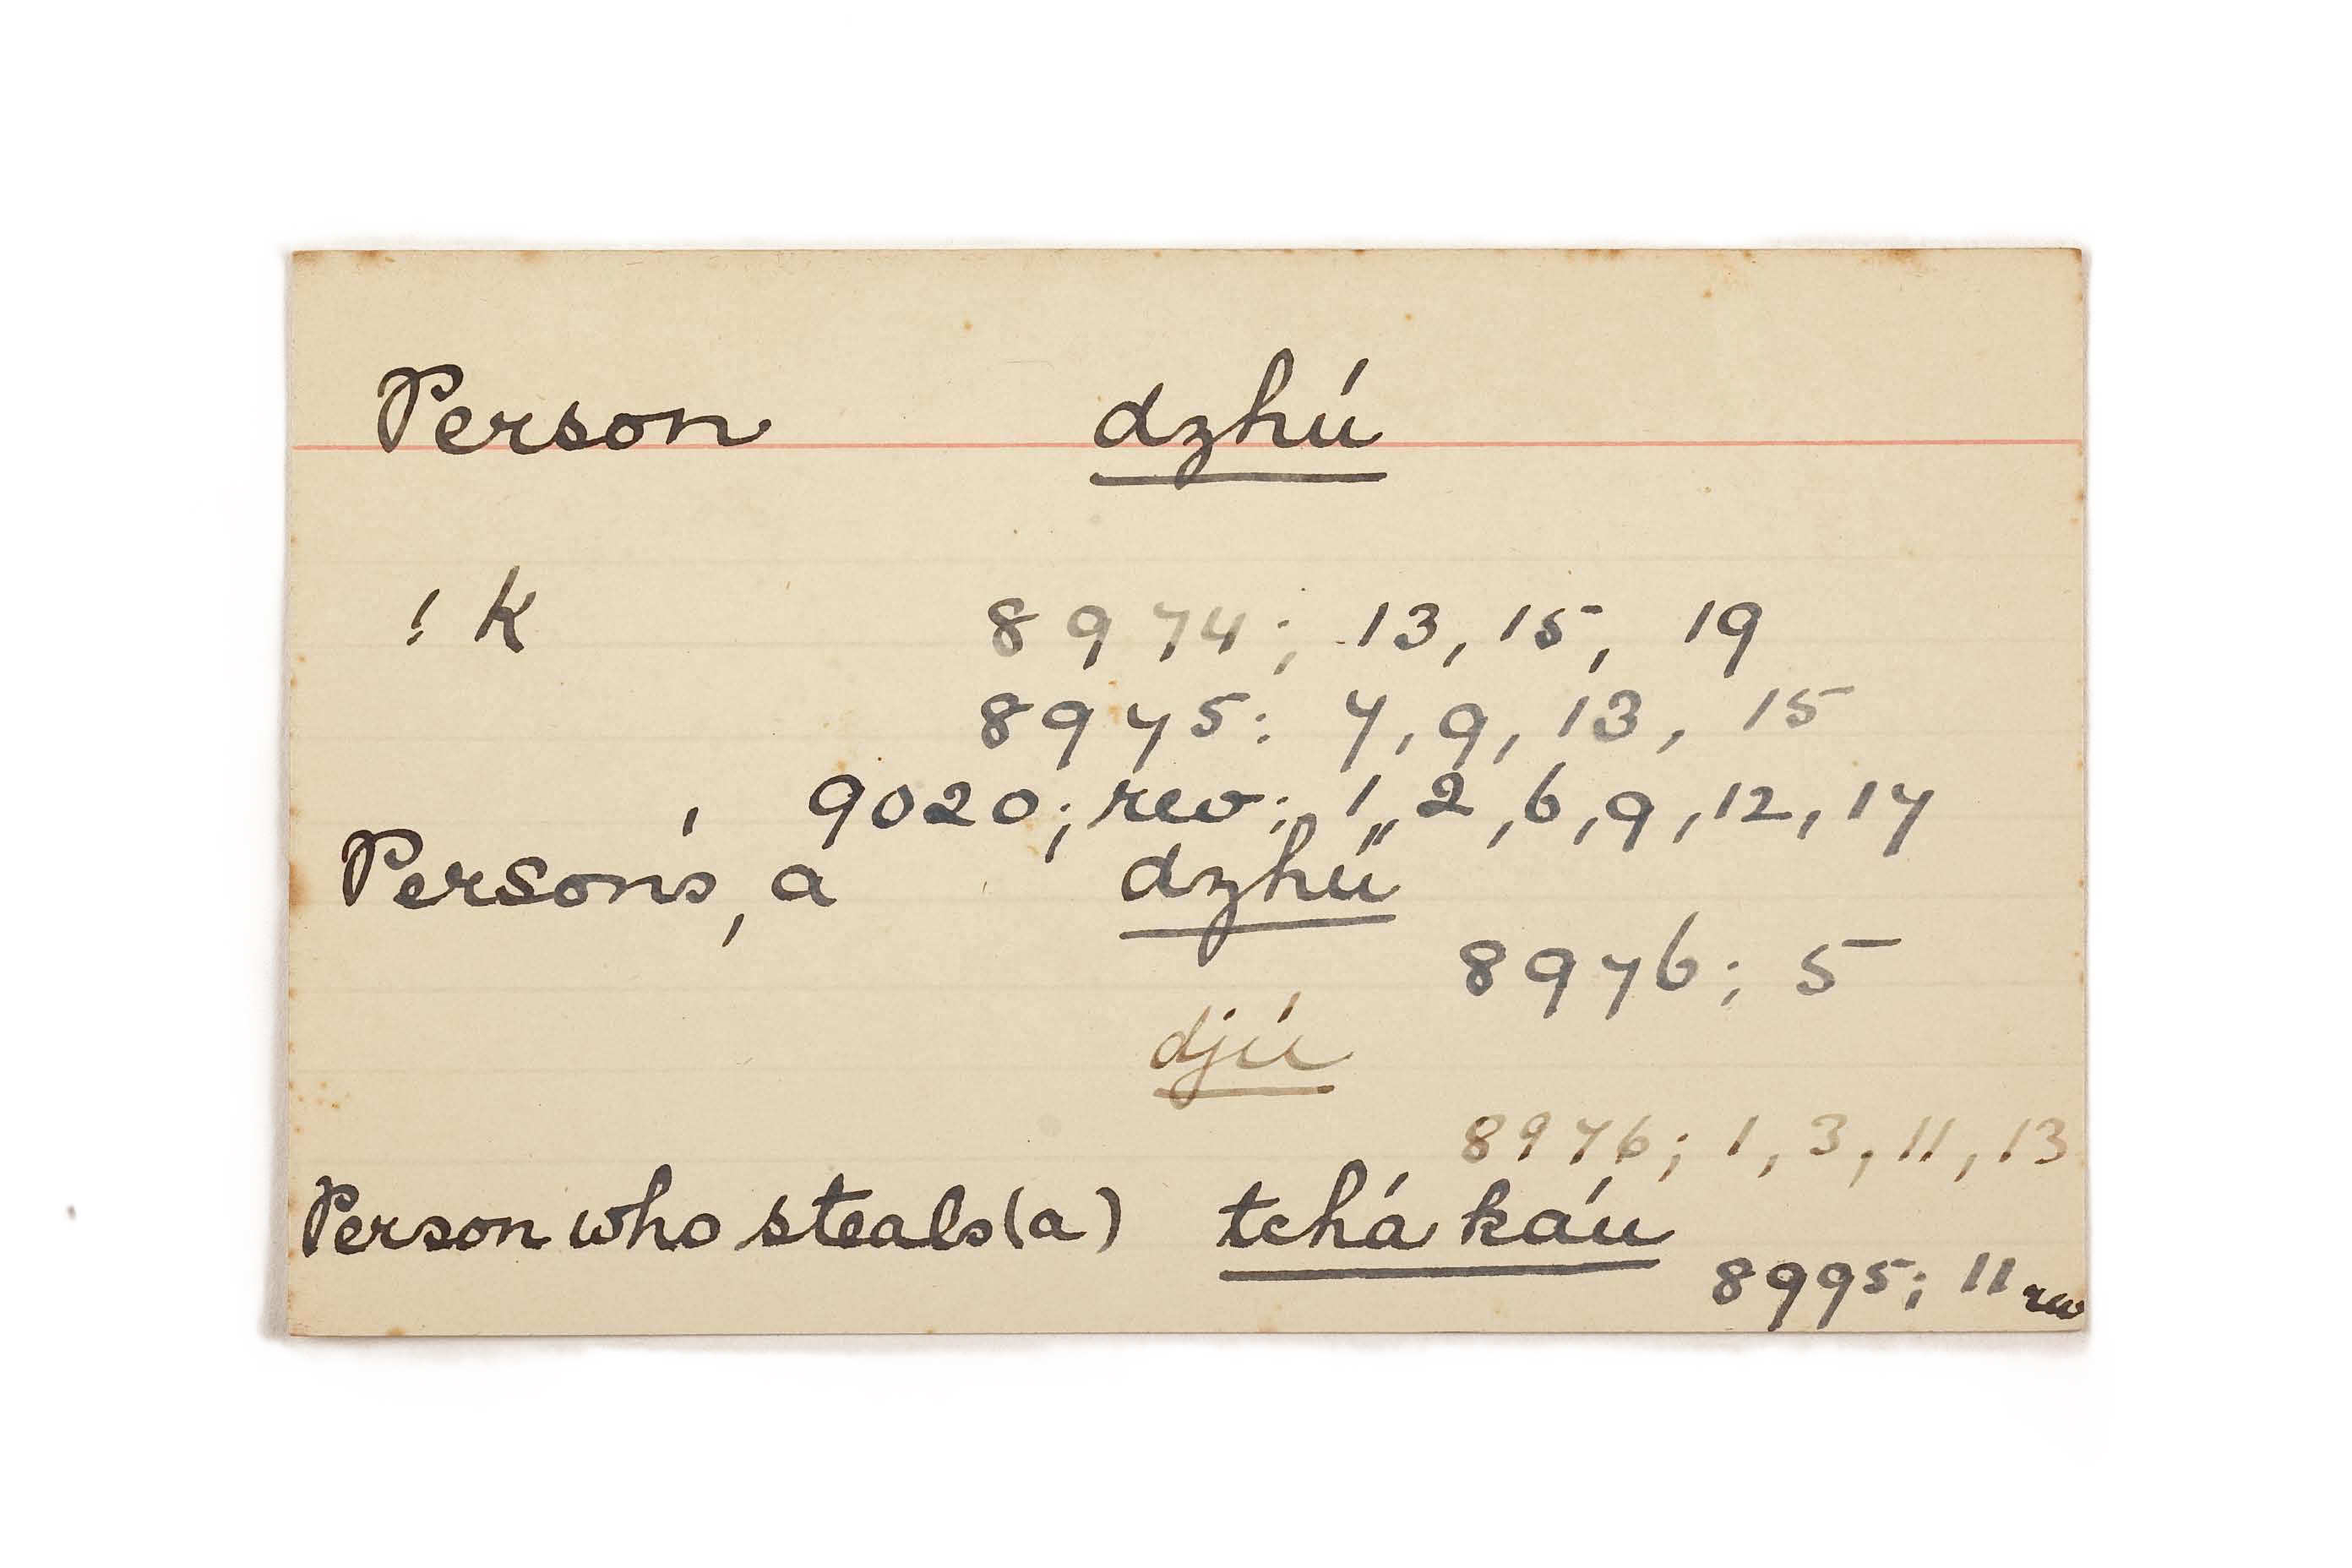 Person dzhú
! k 8974; 13, 15, 19
8975: 7, 9, 13, 15
9020; rev: 1, 2, 6, 9, 12, 17
Person's, a dzhú"
8976; 5
djú
8976; 1, 3, 11, 13
Person who steals (a) tchá káu
8995; 11 rev